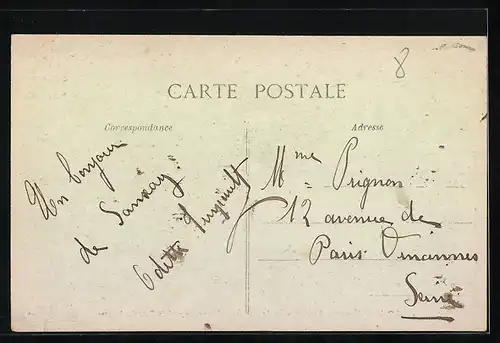 8
CARTE POSTALE
Correspondance
Adresse
Un bonjour
de Sanxay
Odette
Mme Prignon
12 avenue de
Paris Vincennes
Seine